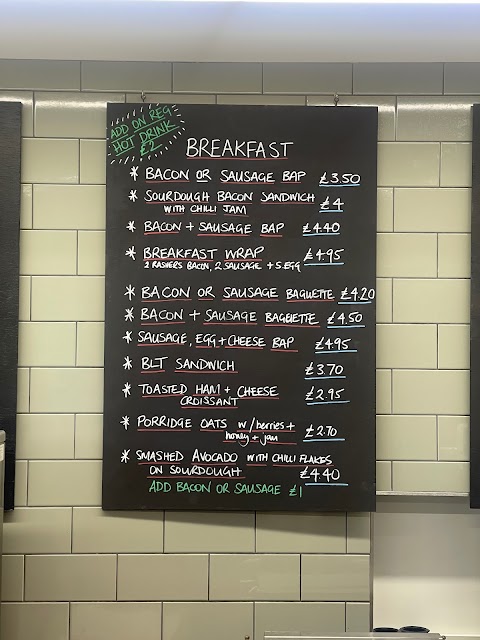 ADD ON REG
HOT DRINK
£2
BREAKFAST
* BACON OR SAUSAGE BAP £3.50
* SOURDOUGH BACON SANDWICH £4
WITH CHILLI JAM
* BACON + SAUSAGE BAP £4.40
* BREAKFAST WRAP £4.95
2 RASHERS BACON, 2 SAUSAGE + S.EGG
* BACON OR SAUSAGE BAGUETTE £4.20
* BACON + SAUSAGE BAGUETTE £4.50
* SAUSAGE, EGG + CHEESE BAP £4.95
* BLT SANDWICH £3.70
* TOASTED HAM + CHEESE £2.95
CROISSANT
* PORRIDGE OATS w/berries + £2.70
honey + jam
* SMASHED AVOCADO WITH CHILLI FLAKES
ON SOURDOUGH £4.40
ADD BACON OR SAUSAGE £1